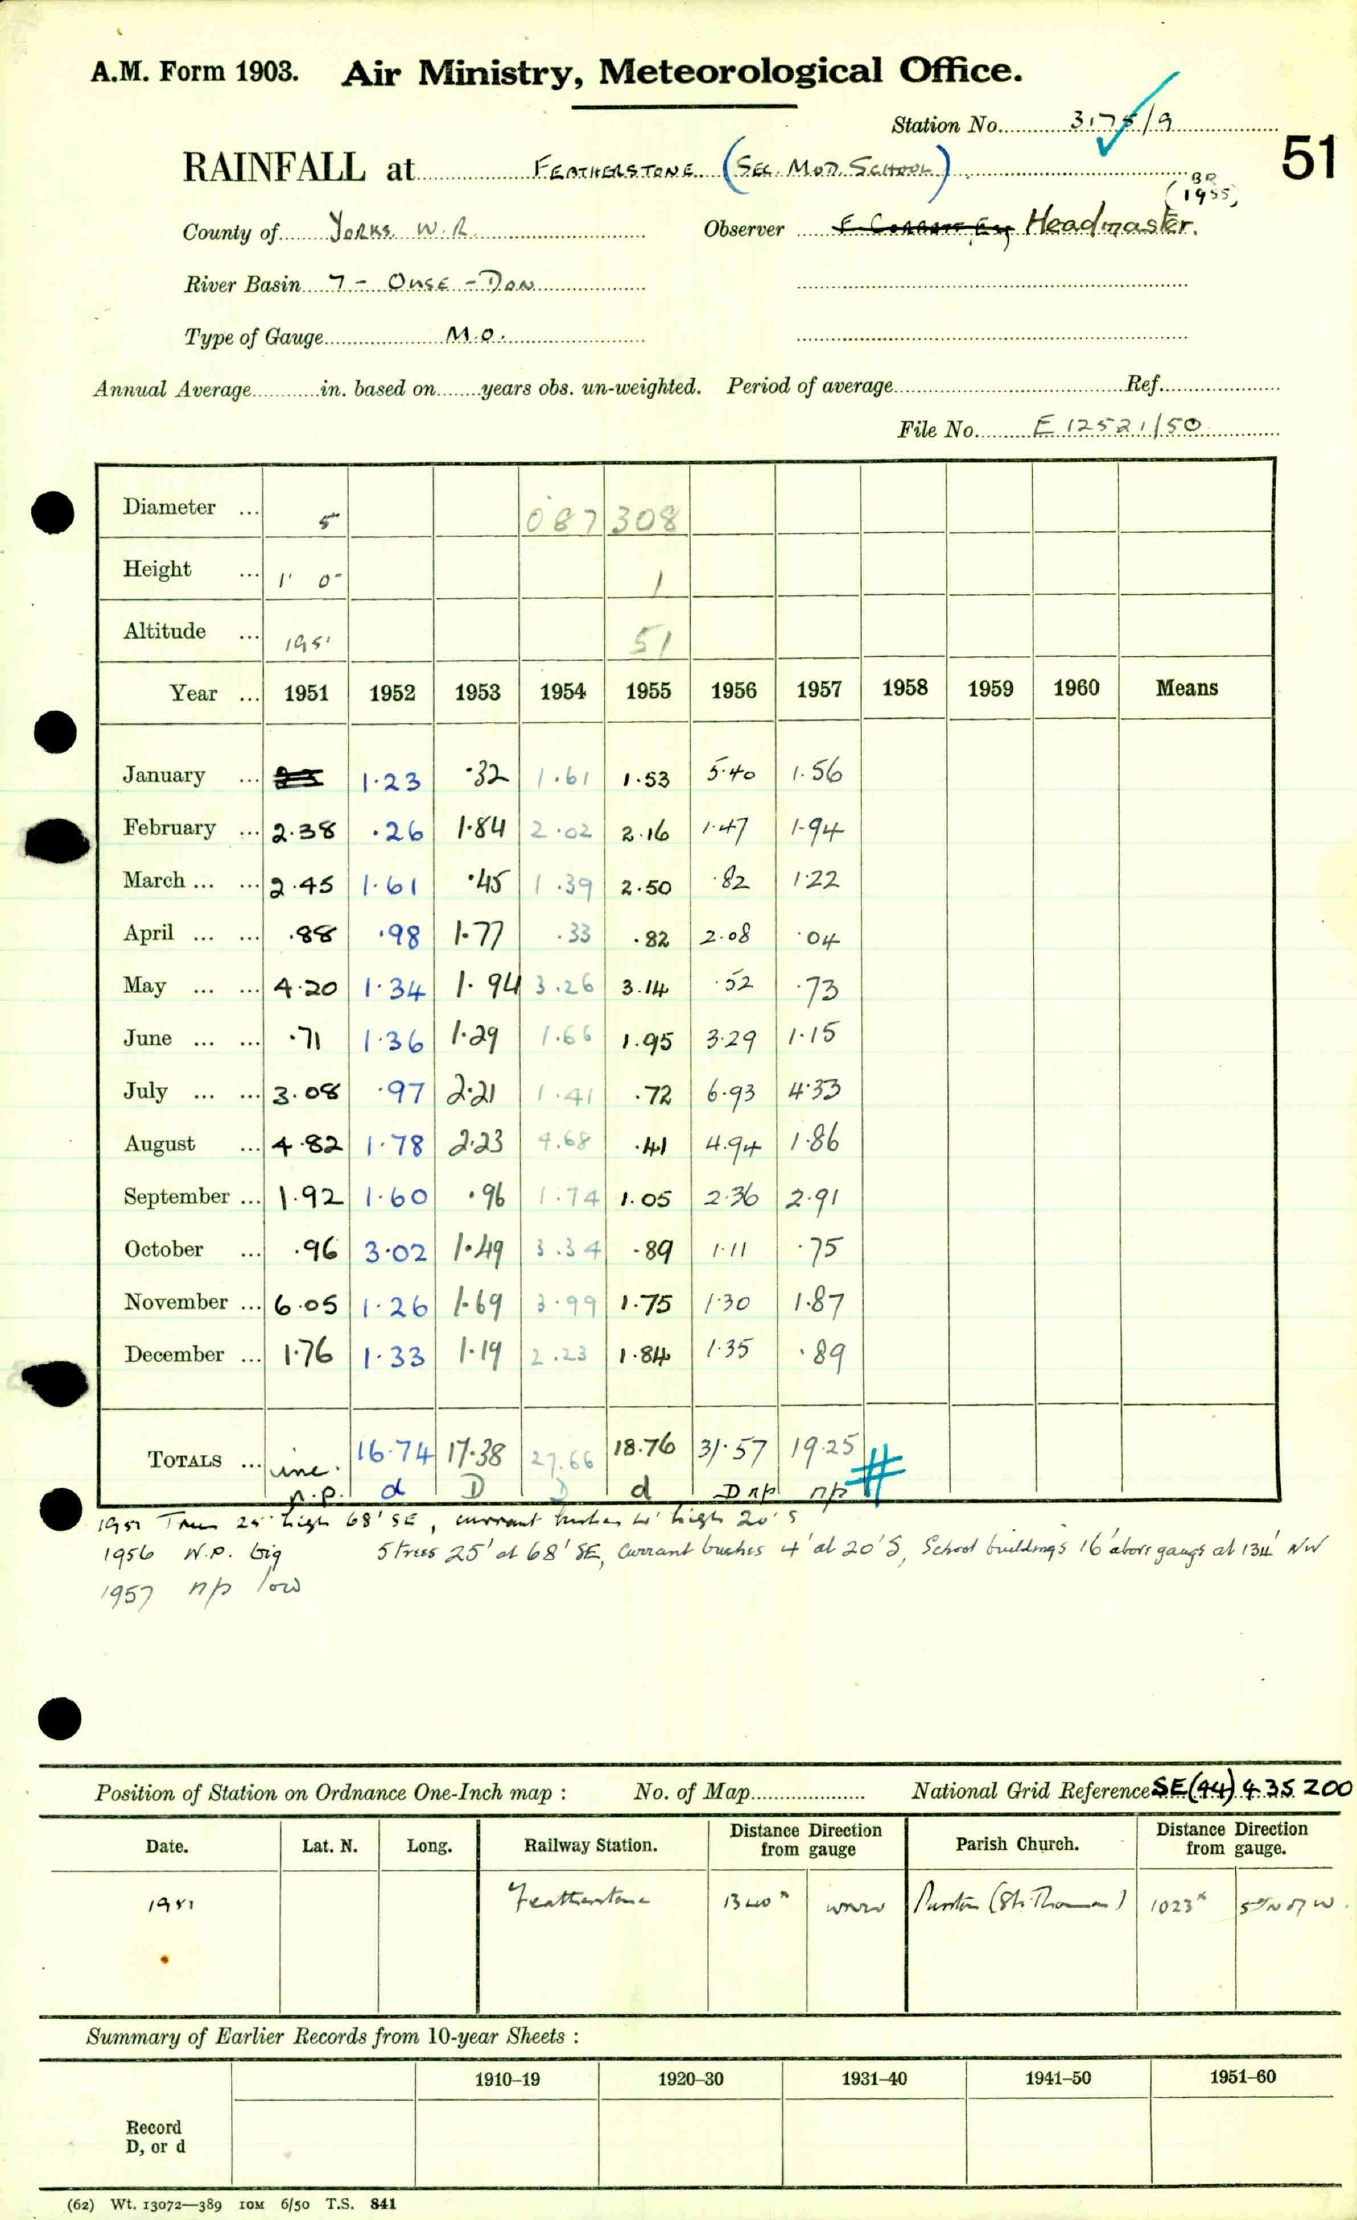 A.M. Form 1903. Air Ministry, Meteorological Office.
Station No. 3175/9
51
RAINFALL at FEATHERSTONE (SEC. MOD. SCHOOL).
BR (1955)
County of YORKS. W.R. Observer Headmaster.
River Basin 7 - OUSE - DON
Type of Gauge M.O.
Annual Average in. based on years obs. un-weighted. Period of average Ref.
File No. E 12521/50
Diameter ... 5 087 308
Height ... 1' 0" 1
Altitude ... 195' 51
Year ... 1951 1952 1953 1954 1955 1956 1957 1958 1959 1960 Means
January ... 1.23 .32 1.61 1.53 5.40 1.56
February ... 2.38 .26 1.84 2.02 2.16 1.47 1.94
March ... ... 2.45 1.61 .45 1.39 2.50 .82 1.22
April ... ... .88 .98 1.77 .33 .82 2.08 .04
May ... ... 4.20 1.34 1.94 3.26 3.14 .52 .73
June ... ... .71 1.36 1.29 1.66 1.95 3.29 1.15
July ... ... 3.08 .97 2.21 1.41 .72 6.93 4.33
August ... 4.82 1.78 2.23 4.68 .41 4.94 1.86
September ... 1.92 1.60 .96 1.74 1.05 2.36 2.91
October ... .96 3.02 1.49 3.34 .89 1.11 .75
November ... 6.05 1.26 1.69 3.99 1.75 1.30 1.87
December ... 1.76 1.33 1.19 2.23 1.84 1.35 .89
TOTALS ... inc. 16.74 17.38 27.66 18.76 31.57 19.25 #
n.p. d D D d D np np
1951 Trees 25' high 68' SE, currant bushes 4' high 20' S
1956 N.P. big 5 trees 25' at 68' SE, Currant bushes 4' at 20' S, School buildings 16' above gauge at 134' NW
1957 np low
Position of Station on Ordnance One-Inch map : No. of Map National Grid Reference SE(44) 435 200
Date. Lat. N. Long. Railway Station. Distance Direction from gauge Parish Church. Distance Direction from gauge.
1951 Featherstone 1340ˣ WNW Purston (St. Thomas) 1023ˣ 5° N of W.
Summary of Earlier Records from 10-year Sheets :
1910–19 1920–30 1931–40 1941–50 1951–60
Record
D, or d
(62) Wt. 13072—389 10M 6/50 T.S. 841